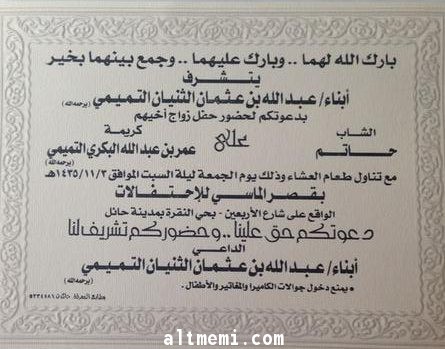 بارك الله لهما .. وبارك عليهما .. وجمع بينهما بخير
يتشرف
أبناء/ عبدالله بن عثمان الثنيان التميمي (يرحمه الله)
بدعوتكم لحضور حفل زواج أخيهم
الشاب على كريمة
حاتم عمر بن عبدالله البكري التميمي (يرحمه الله)
مع تناول طعام العشاء وذلك يوم الجمعة ليلة السبت الموافق ١٤٣٥/١١/٣هـ
بقصر الماسي للإحتفالات
الواقع على شارع الأربعين - بحي النقرة بمدينة حائل
دعوتكم حق علينا .. وحضوركم تشريف لنا
الداعي
أبناء/ عبدالله بن عثمان الثنيان التميمي (يرحمه الله)
• يمنع دخول جوالات الكاميرا والمفاتير والأطفال.
altmemi.com